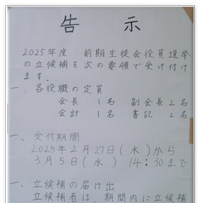 告 示
2025年度 前期生徒会役員選挙
の立候補を次の要領で受け付け
ます。
一、各役職の定員
会長 1名 副会長 2名
会計 1名 書記 2名
一、受付期間
2025年2月27日(木)から
3月5日(水) 14:30まで
一、立候補の届け出
立候補者は、期間内に立候補